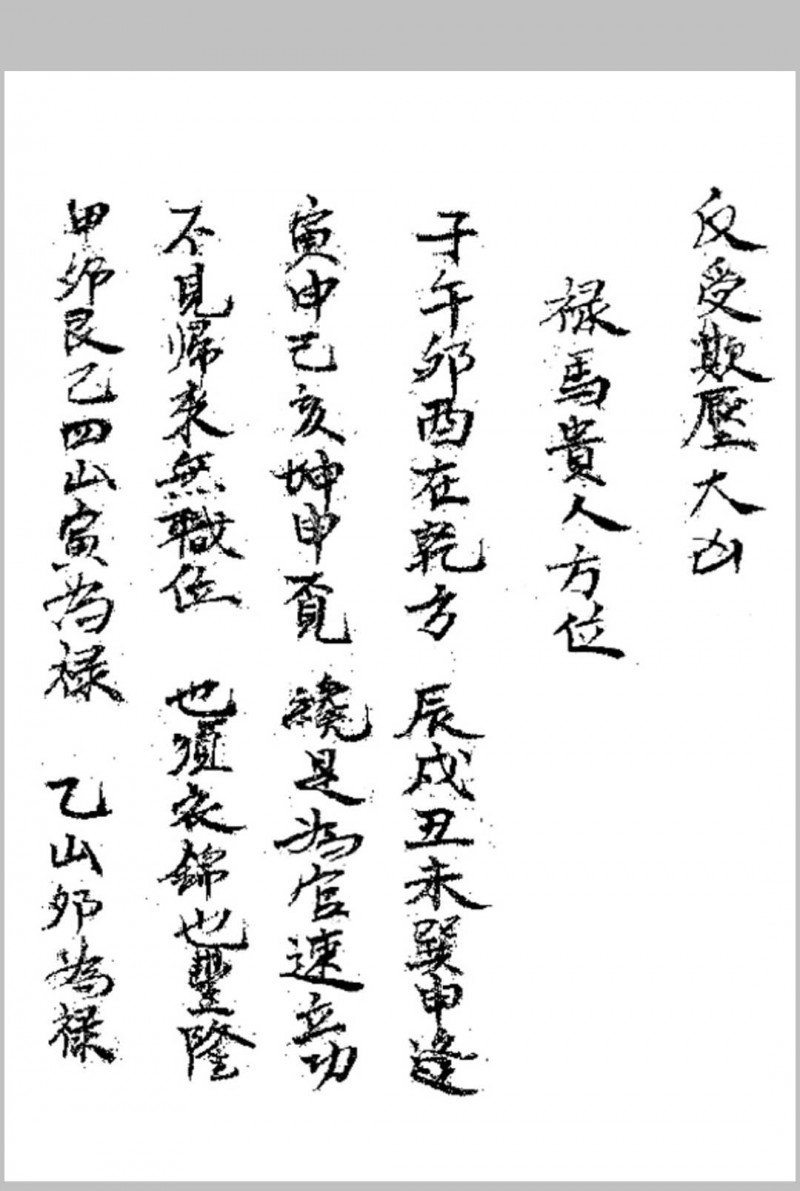 反受欺壓大凶
祿馬貴人方位
子午卯酉在乾方 辰戌丑未巽申逢
寅申己亥坤申覓 纔是為官速立功
不見歸來無職位 也須衣錦也豐隆
甲卯艮乙四山寅為祿 乙山卯為祿